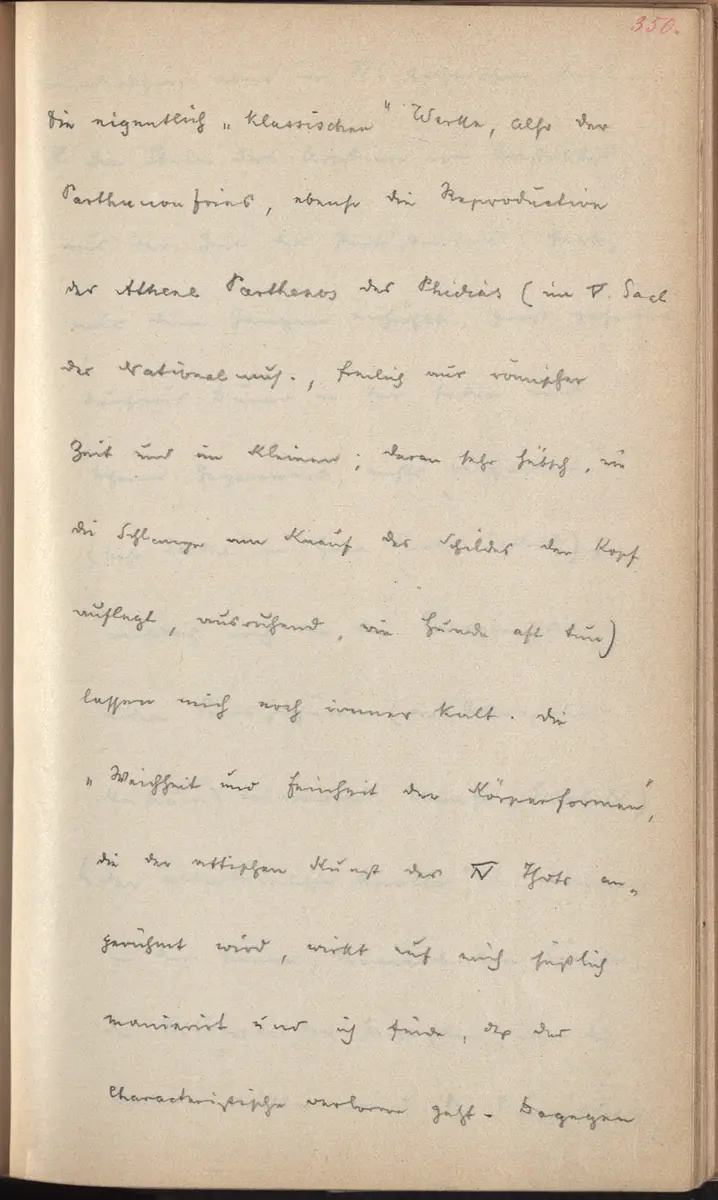 350.
Die eigentlich „klassischen" Werke, also der
Parthenonfries, ebenso die Reproduction
der Athene Parthenos des Phidias (im V. Saal
des Nationalmus., freilich aus römischer
Zeit und im Kleinen; daran sehr hübsch, wie
die Schlange am Knauf des Schildes den Kopf
auflegt, ausruhend, wie Hunde oft tun)
lassen mich noch immer kalt. Die
„Weichheit und Feinheit der Körperformen",
die der attischen Kunst des IV Jhdts an„
gerühmt wird, wirkt auf mich süßlich
manierirt und ich finde, daß das
Characteristische verloren geht. Dagegen